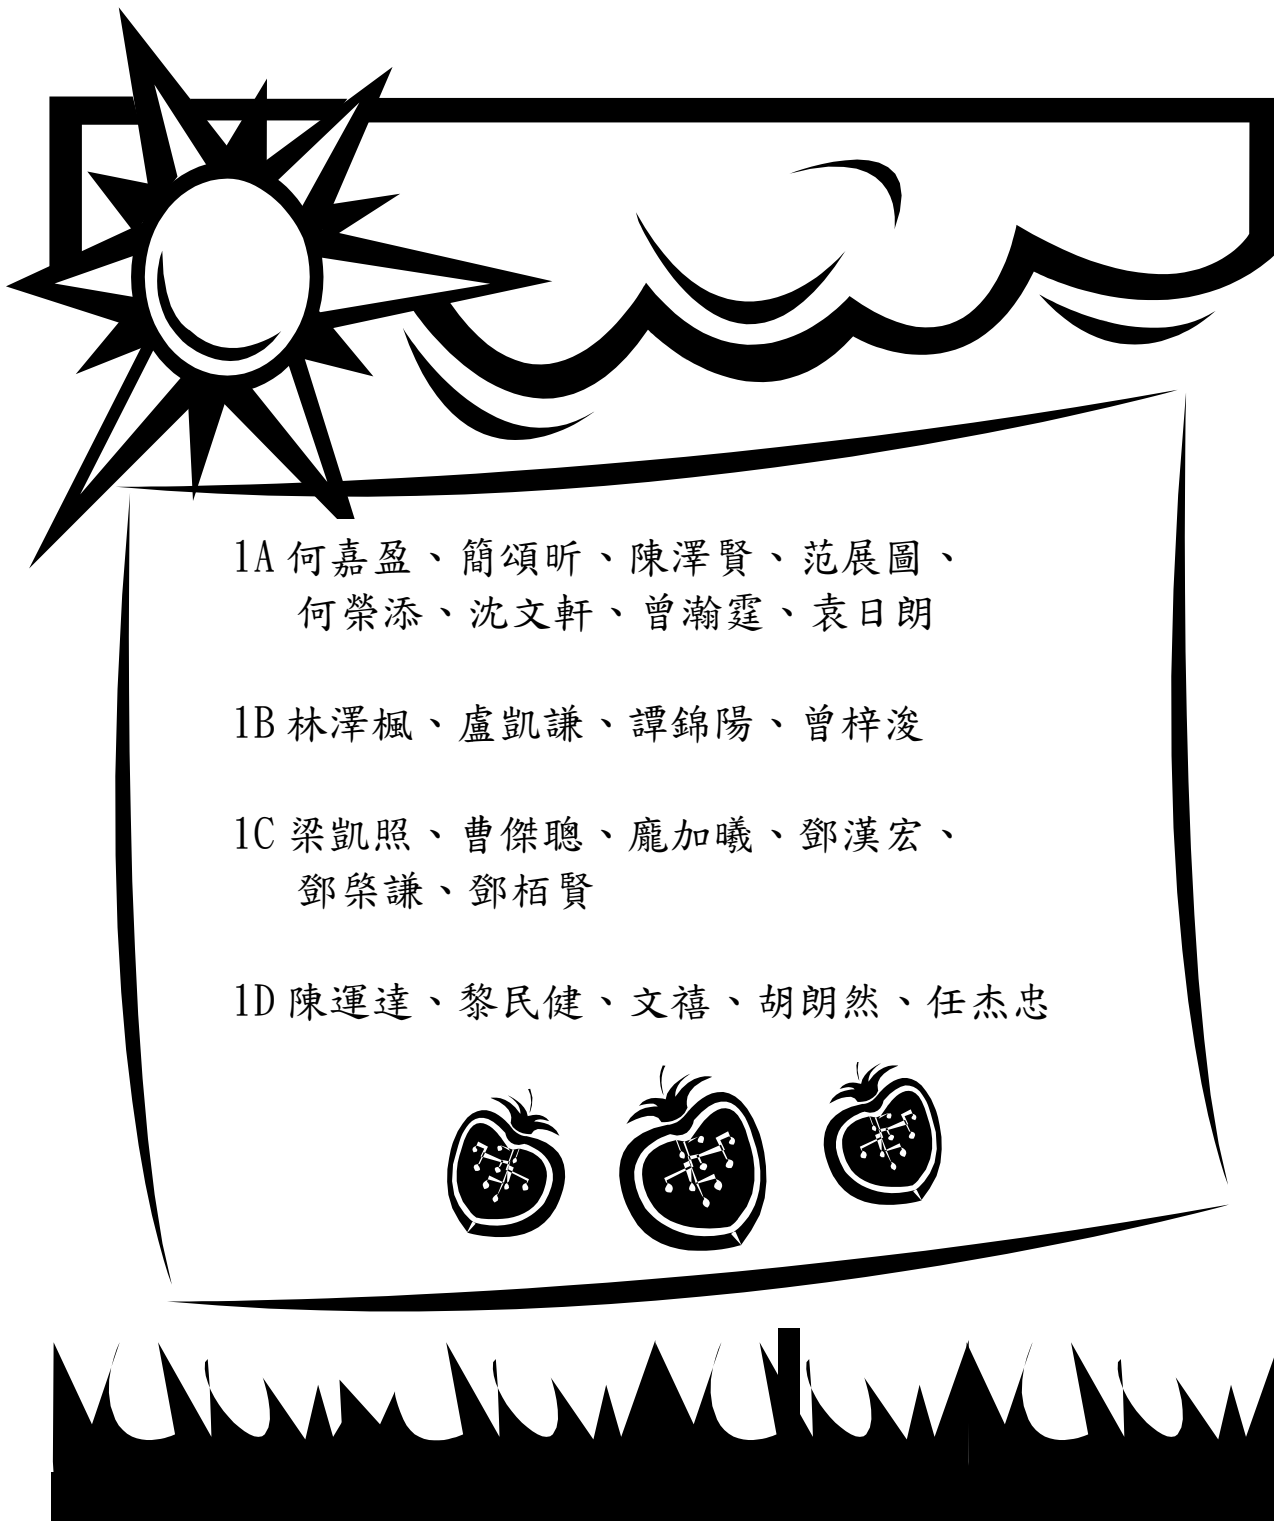 1A 何嘉盈、簡頌昕、陳澤賢、范展圖、
何榮添、沈文軒、曾瀚霆、袁日朗
1B 林澤楓、盧凱謙、譚錦陽、曾梓浚
1C 梁凱照、曹傑聰、龐加曦、鄧漢宏、
鄧棨謙、鄧栢賢
1D 陳運達、黎民健、文禧、胡朗然、任杰忠